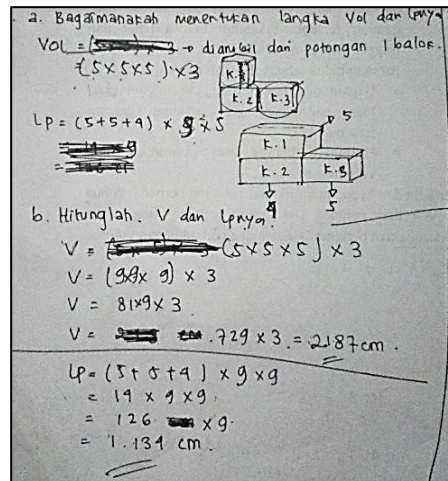 a. Bagaimanakah menentukan langka Vol dan Lpnya
VOL = → diambil dari potongan 1 balok.
= (5×5×5) × 3
K.1
K.2 K.3
Lp = (5+5+4) × 9 × 5
5
K.1
K.2 K.3
9 5
b. Hitunglah. V dan Lpnya.
V = (5×5×5) × 3
V = (9×9×9) × 3
V = 81×9×3
V = 729 × 3 = 2187 cm.
Lp = (5+5+4) × 9 × 9
= 14 × 9 × 9
= 126 × 9.
= 1.134 cm.